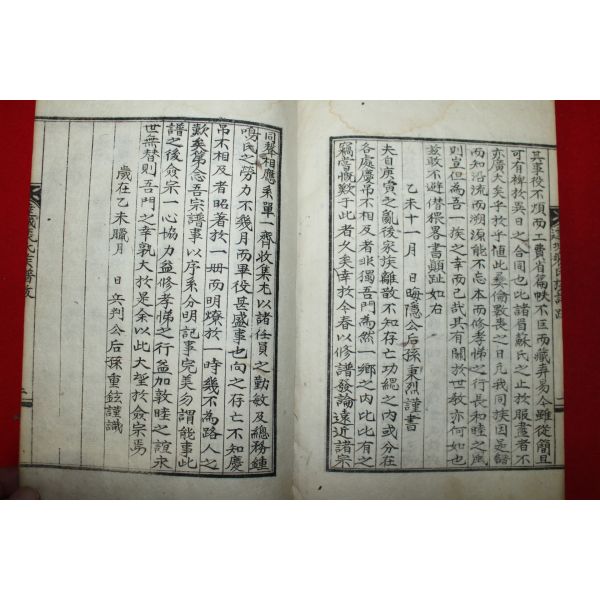 其事役不煩而工費省篇帙不巨而藏弆易今雖從簡且
可有裨於異日之合同也此諸眉蘇氏之止於服盡者不
亦廣大矣乎於乎値此彛倫斁喪之日凡我同族因是譜
而知沿流而溯源能不忘本而修孝悌之行長和睦之風
則豈但為吾一族之幸而已哉其有關於世敎亦何如也
玆敢不避僭猥畧書顚趾如右
乙未十一月 日晦隱公后孫秉烈謹書
夫自庚寅之亂後家族離散不知存亡功緦之內或分在
各處慶吊不相及者非獨吾門為然一鄕之內比比有之
竊嘗慨歎于此者久矣幸於今春以修譜發論遠近諸宗
同聲相應系單一齊收集尤以諸任員之勤敏及總務鍾
鳴氏之勞力不幾月而畢役甚盛事也向之存亡不知慶
吊不相及者昭著於一冊而明燎於一時幾不為路人之
歎矣第念吾宗譜事以序系分明記事完美勿謂能事此
譜之後僉宗一心協力益修孝悌之行益加敦睦之誼永
世無替則吾門之幸孰大於是余以此大望於僉宗焉
歲在乙未臘月 日兵判公后孫重鉉謹識